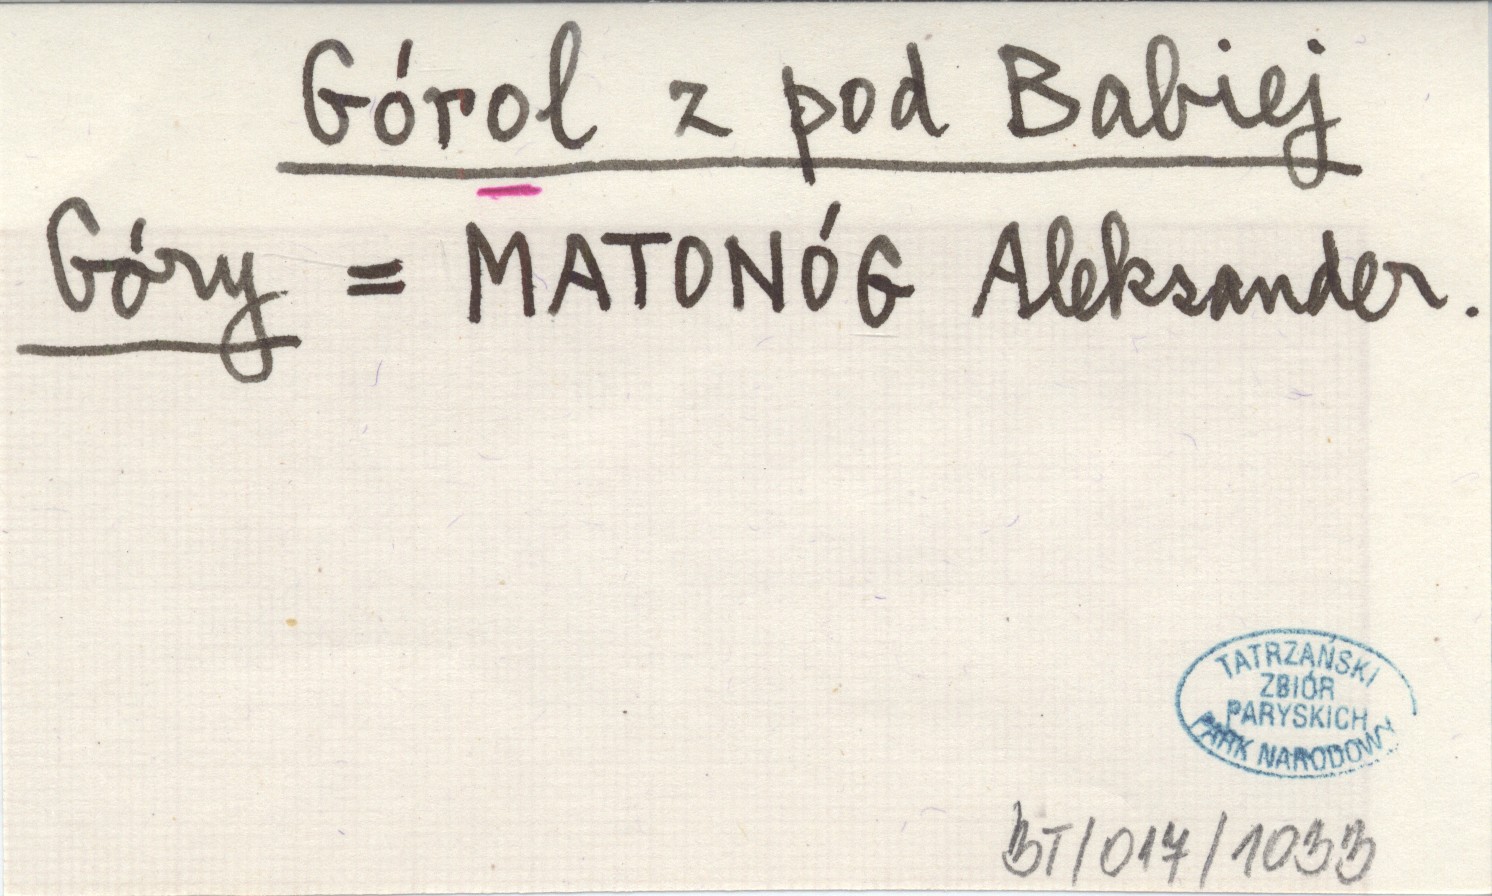 Górol z pod Babiej
Góry = MATONÓG Aleksander.
TATRZAŃSKI
ZBIÓR
PARYSKICH
PARK NARODOWY
BT/017/1033